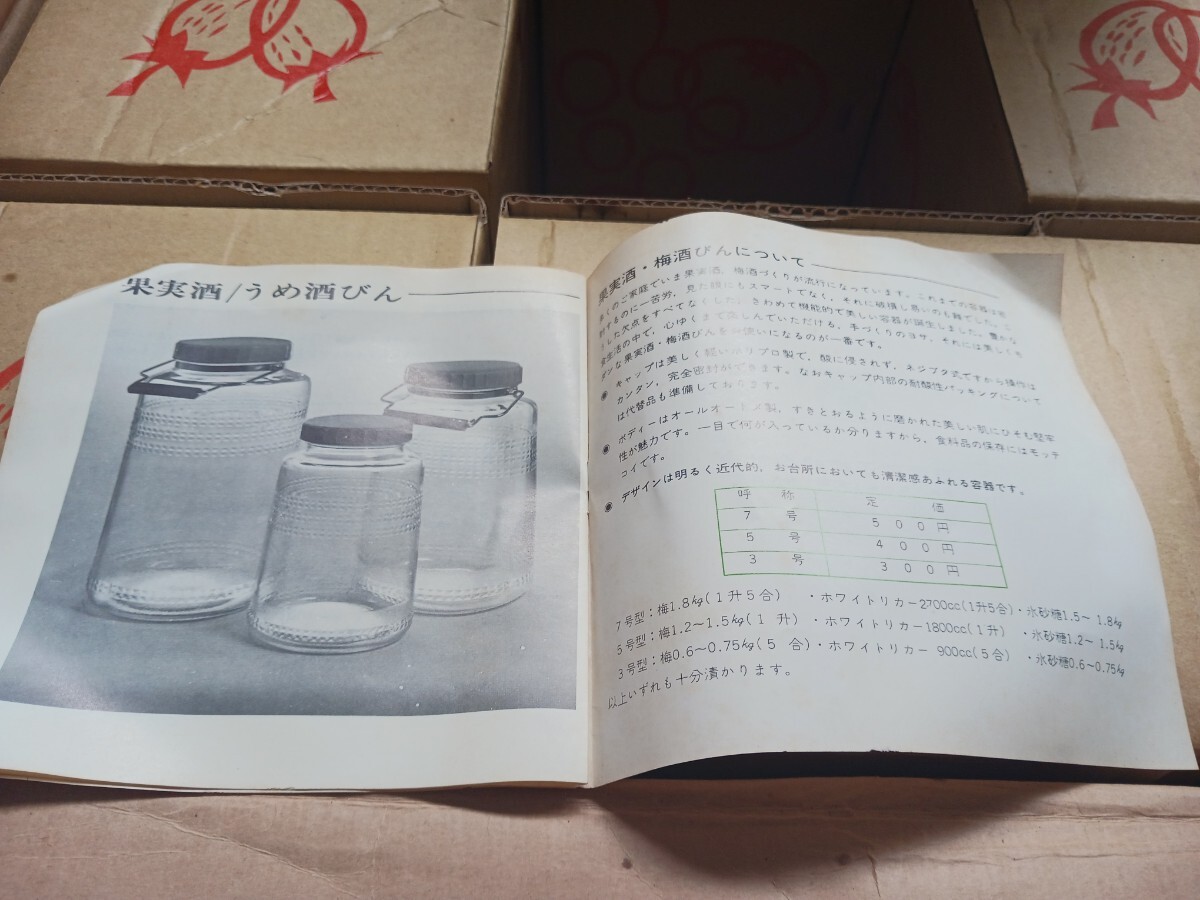 果実酒/うめ酒びん
果実酒・梅酒びんについて
多くのご家庭でいま果実酒、梅酒づくりが流行になっています。これまでの容器は密
封するのに一苦労、見た目にもスマートでなく、それに破損し易いのも難でした。こ
うした欠点をすべてなくした、きわめて機能的で美しい容器が誕生しました。豊かな
食生活の中で、心ゆくまで楽しんでいただける、手づくりのヨサ、それには美しくモ
ダンな果実酒・梅酒びんをお使いになるのが一番です。
◉ キャップは美しく軽いポリプロ製で、酸に侵されず、ネジブタ式ですから操作は
カンタン、完全密封ができます。なおキャップ内部の耐酸性パッキングについて
は代替品も準備しております。
◉ ボディーはオールオートメ製、すきとおるように磨かれた美しい肌にひそむ堅牢
性が魅力です。一目で何が入っているか分りますから、食料品の保存にはモッテ
コイです。
◉ デザインは明るく近代的、お台所においても清潔感あふれる容器です。
呼 称 定 価
7 号 500円
5 号 400円
3 号 300円
7号型：梅1.8kg(1升5合) ・ホワイトリカー2700cc(1升5合)・氷砂糖1.5～1.8kg
5号型：梅1.2～1.5kg(1 升) ・ホワイトリカー1800cc(1升) ・氷砂糖1.2～1.5kg
3号型：梅0.6～0.75kg(5 合)・ホワイトリカー 900cc(5合) ・氷砂糖0.6～0.75kg
以上いずれも十分漬かります。